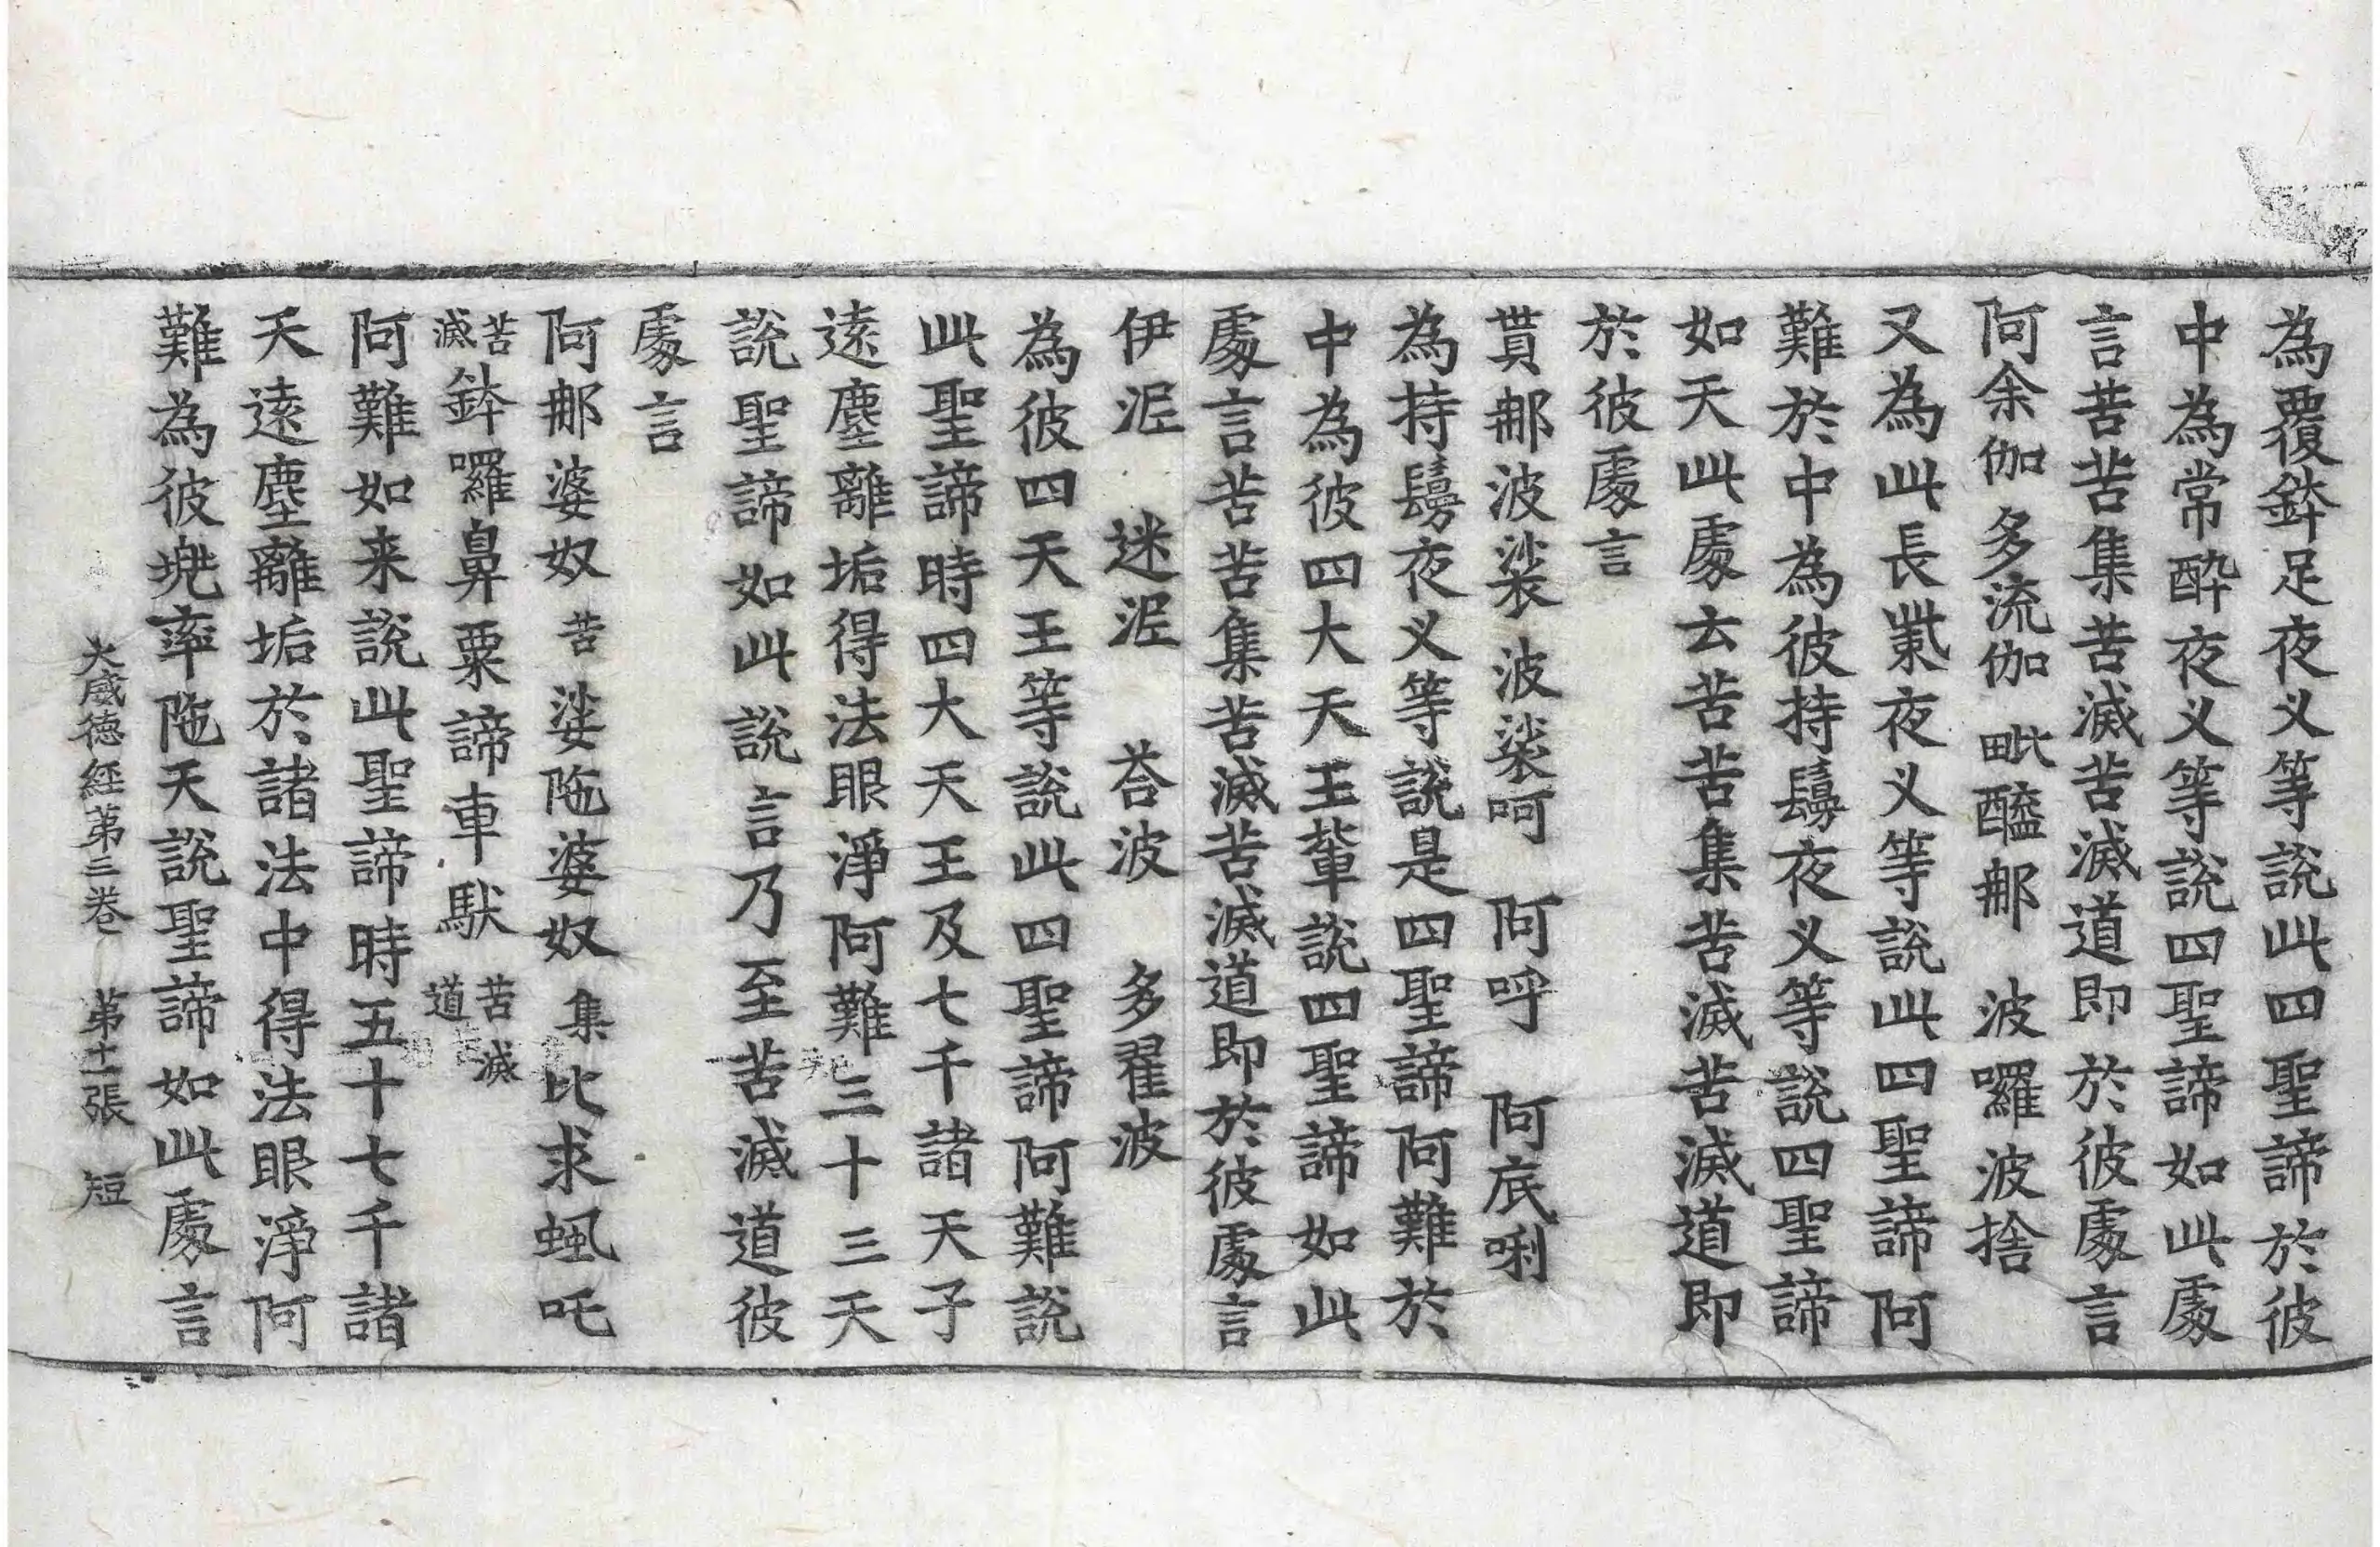 為覆鉢足夜乂等說此四聖諦於彼
中為常醉夜乂等說四聖諦如此處
言苦苦集苦滅苦滅道即於彼處言
阿余伽多流伽 毗醯那 波囉波捨
又為此長𣯶夜乂等說此四聖諦阿
難於中為彼持鬘夜乂等說四聖諦
如天此處去苦苦集苦滅苦滅道即
於彼處言
貰那波裟 波裟呵 阿呼 阿底唎
為持鬘夜乂等說是四聖諦阿難於
中為彼四大天王輩說四聖諦如此
處言苦苦集苦滅苦滅道即於彼處言
伊泥 迷泥 荅波 多翟波
為彼四天王等說此四聖諦阿難說
此聖諦時四大天王及七千諸天子
遠塵離垢得法眼淨阿難三十三天
說聖諦如此說言乃至苦滅道彼
處言
阿那婆奴苦娑陁婆奴集比求䫻吒
苦滅鉢囉鼻粟諦車馱苦滅道
阿難如来說此聖諦時五十七千諸
天遠塵離垢於諸法中得法眼淨阿
難為彼兠率陁天說聖諦如此處言
大威德經第三卷 第十一張 短